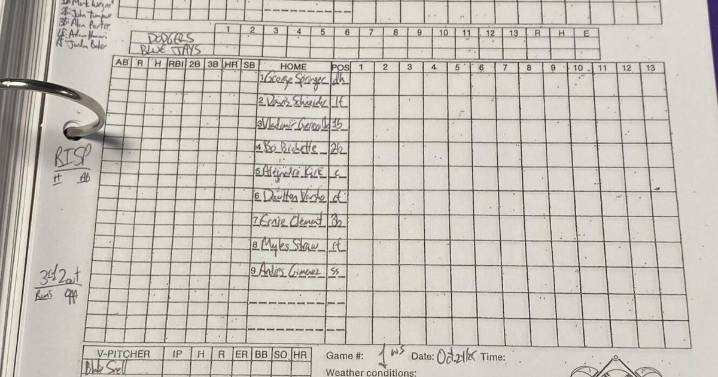 1 2 3 4 5 6 7 8 9 10 11 12 13 R H E
DODGERS
BLUE JAYS
AB R H RBI 2B 3B HR SB HOME POS 1 2 3 4 5 6 7 8 9 10 11 12 13
1 George Springer dh
2 Davis Schneider lf
3 Vladimir Guerrero 1b
4 Bo Bichette 2b
RISP
H AB
5 Alejandro Kirk c
6 Daulton Varsho cf
7 Ernie Clement 3b
8 Myles Straw rf
9 Andres Gimenez ss
3rd 2out
Runs
V-PITCHER IP H R ER BB SO HR
Blake Snell
Game #: 1 WS Date: Oct 24/25 Time:
Weather conditions: